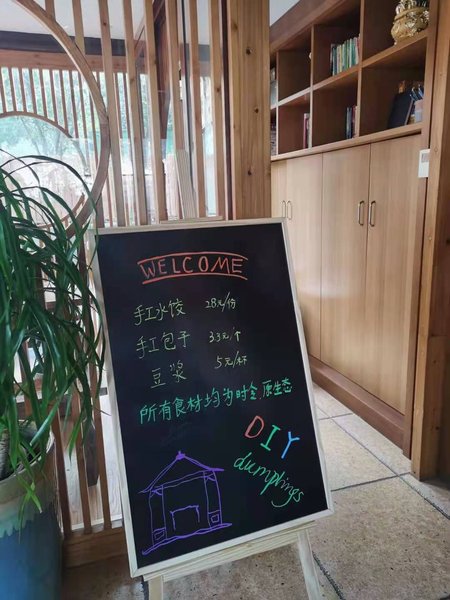 WELCOME
手工水饺 28元/份
手工包子 33元/个
豆浆 5元/杯
所有食材均为时令.原生态
DIY
dumplings